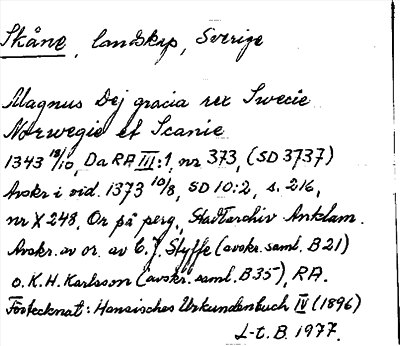 Skåne, landskap, Sverige
Magnus Dej gracia rex Swecie
Norwegie et Scanie
1343 18/10, Da RA III:1, nr 373, (SD 3737)
Avskr i vid. 1373 10/8, SD 10:2, s. 216,
nr X 248, Or på perg., Stadtarchiv Anklam.
Avskr. av or. av C.J. Styffe (avskr. saml. B 21)
o. K.H. Karlsson (avskr. saml. B 35), RA.
Förtecknat: Hansisches Urkundenbuch IV (1896)
L-t. B. 1977.